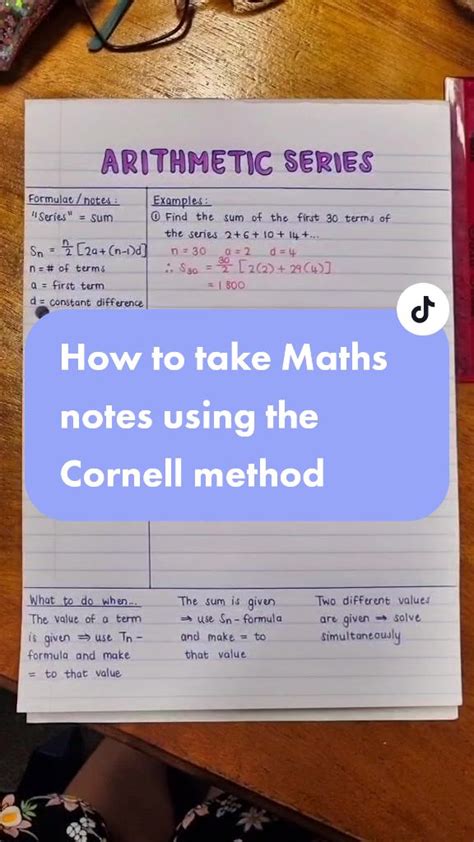 ARITHMETIC SERIES
Formulae/notes:
"Series" = sum
Sn = n/2 [2a+(n-1)d]
n = # of terms
a = first term
d = constant difference
Examples:
① Find the sum of the first 30 terms of
the series 2+6+10+14+...
n = 30 a = 2 d = 4
∴ S30 = 30/2 [2(2) + 29(4)]
= 1800
How to take Maths
notes using the
Cornell method
What to do when...
The value of a term
is given ⇒ use Tn-
formula and make
= to that value
The sum is given
⇒ use Sn-formula
and make = to
that value
Two different values
are given → solve
simultaneously